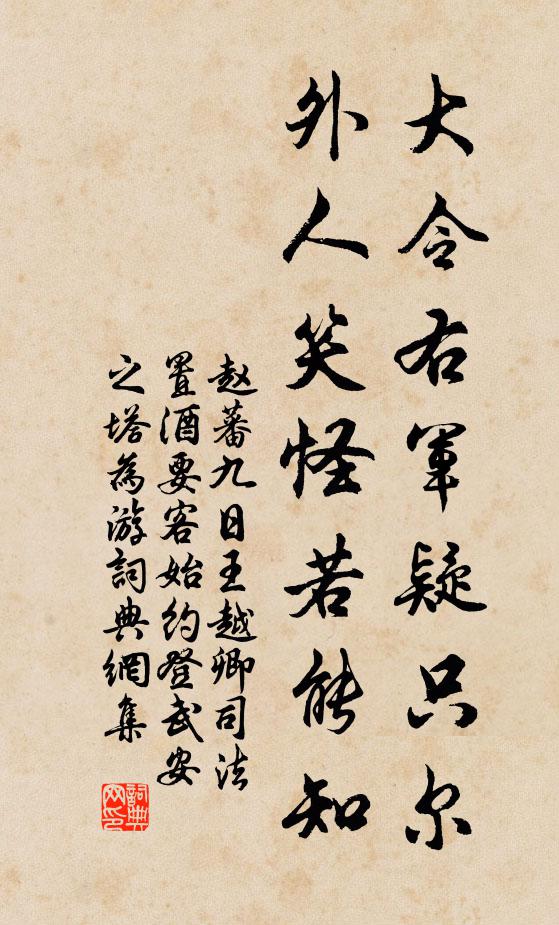 大令右军疑只尔
外人笑怪若能知
赵蕃九日王越卿司法
置酒要客始约登武安
之塔为游词典网集
词典网印